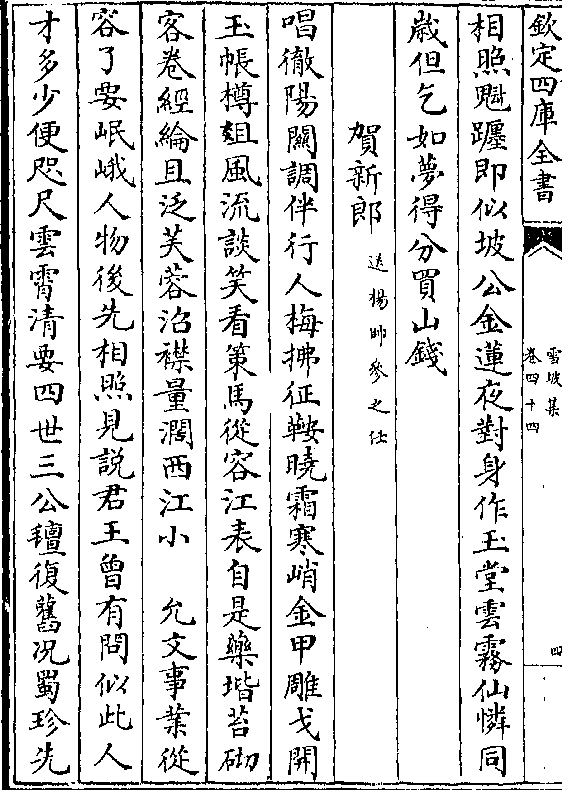 欽定四庫全書
雪坡集
卷四十四
四
相照魁躔即似坡公金蓮夜對身作玉堂雲霧仙憐同
歳但乞如夢得分買山錢
賀新郎 送楊帥參之任
唱徹陽關調伴行人梅拂征鞍曉霜寒峭金甲雕戈開
玉帳樽俎風流談笑看策馬從容江表自是藥堦苔砌
客卷經綸且泛芙蓉沼襟量濶西江小 允文事業從
容了要岷峨人物後先相照見説君王曾有問似此人
才多少便咫尺雲霄清要四世三公氊復舊况蜀珍先